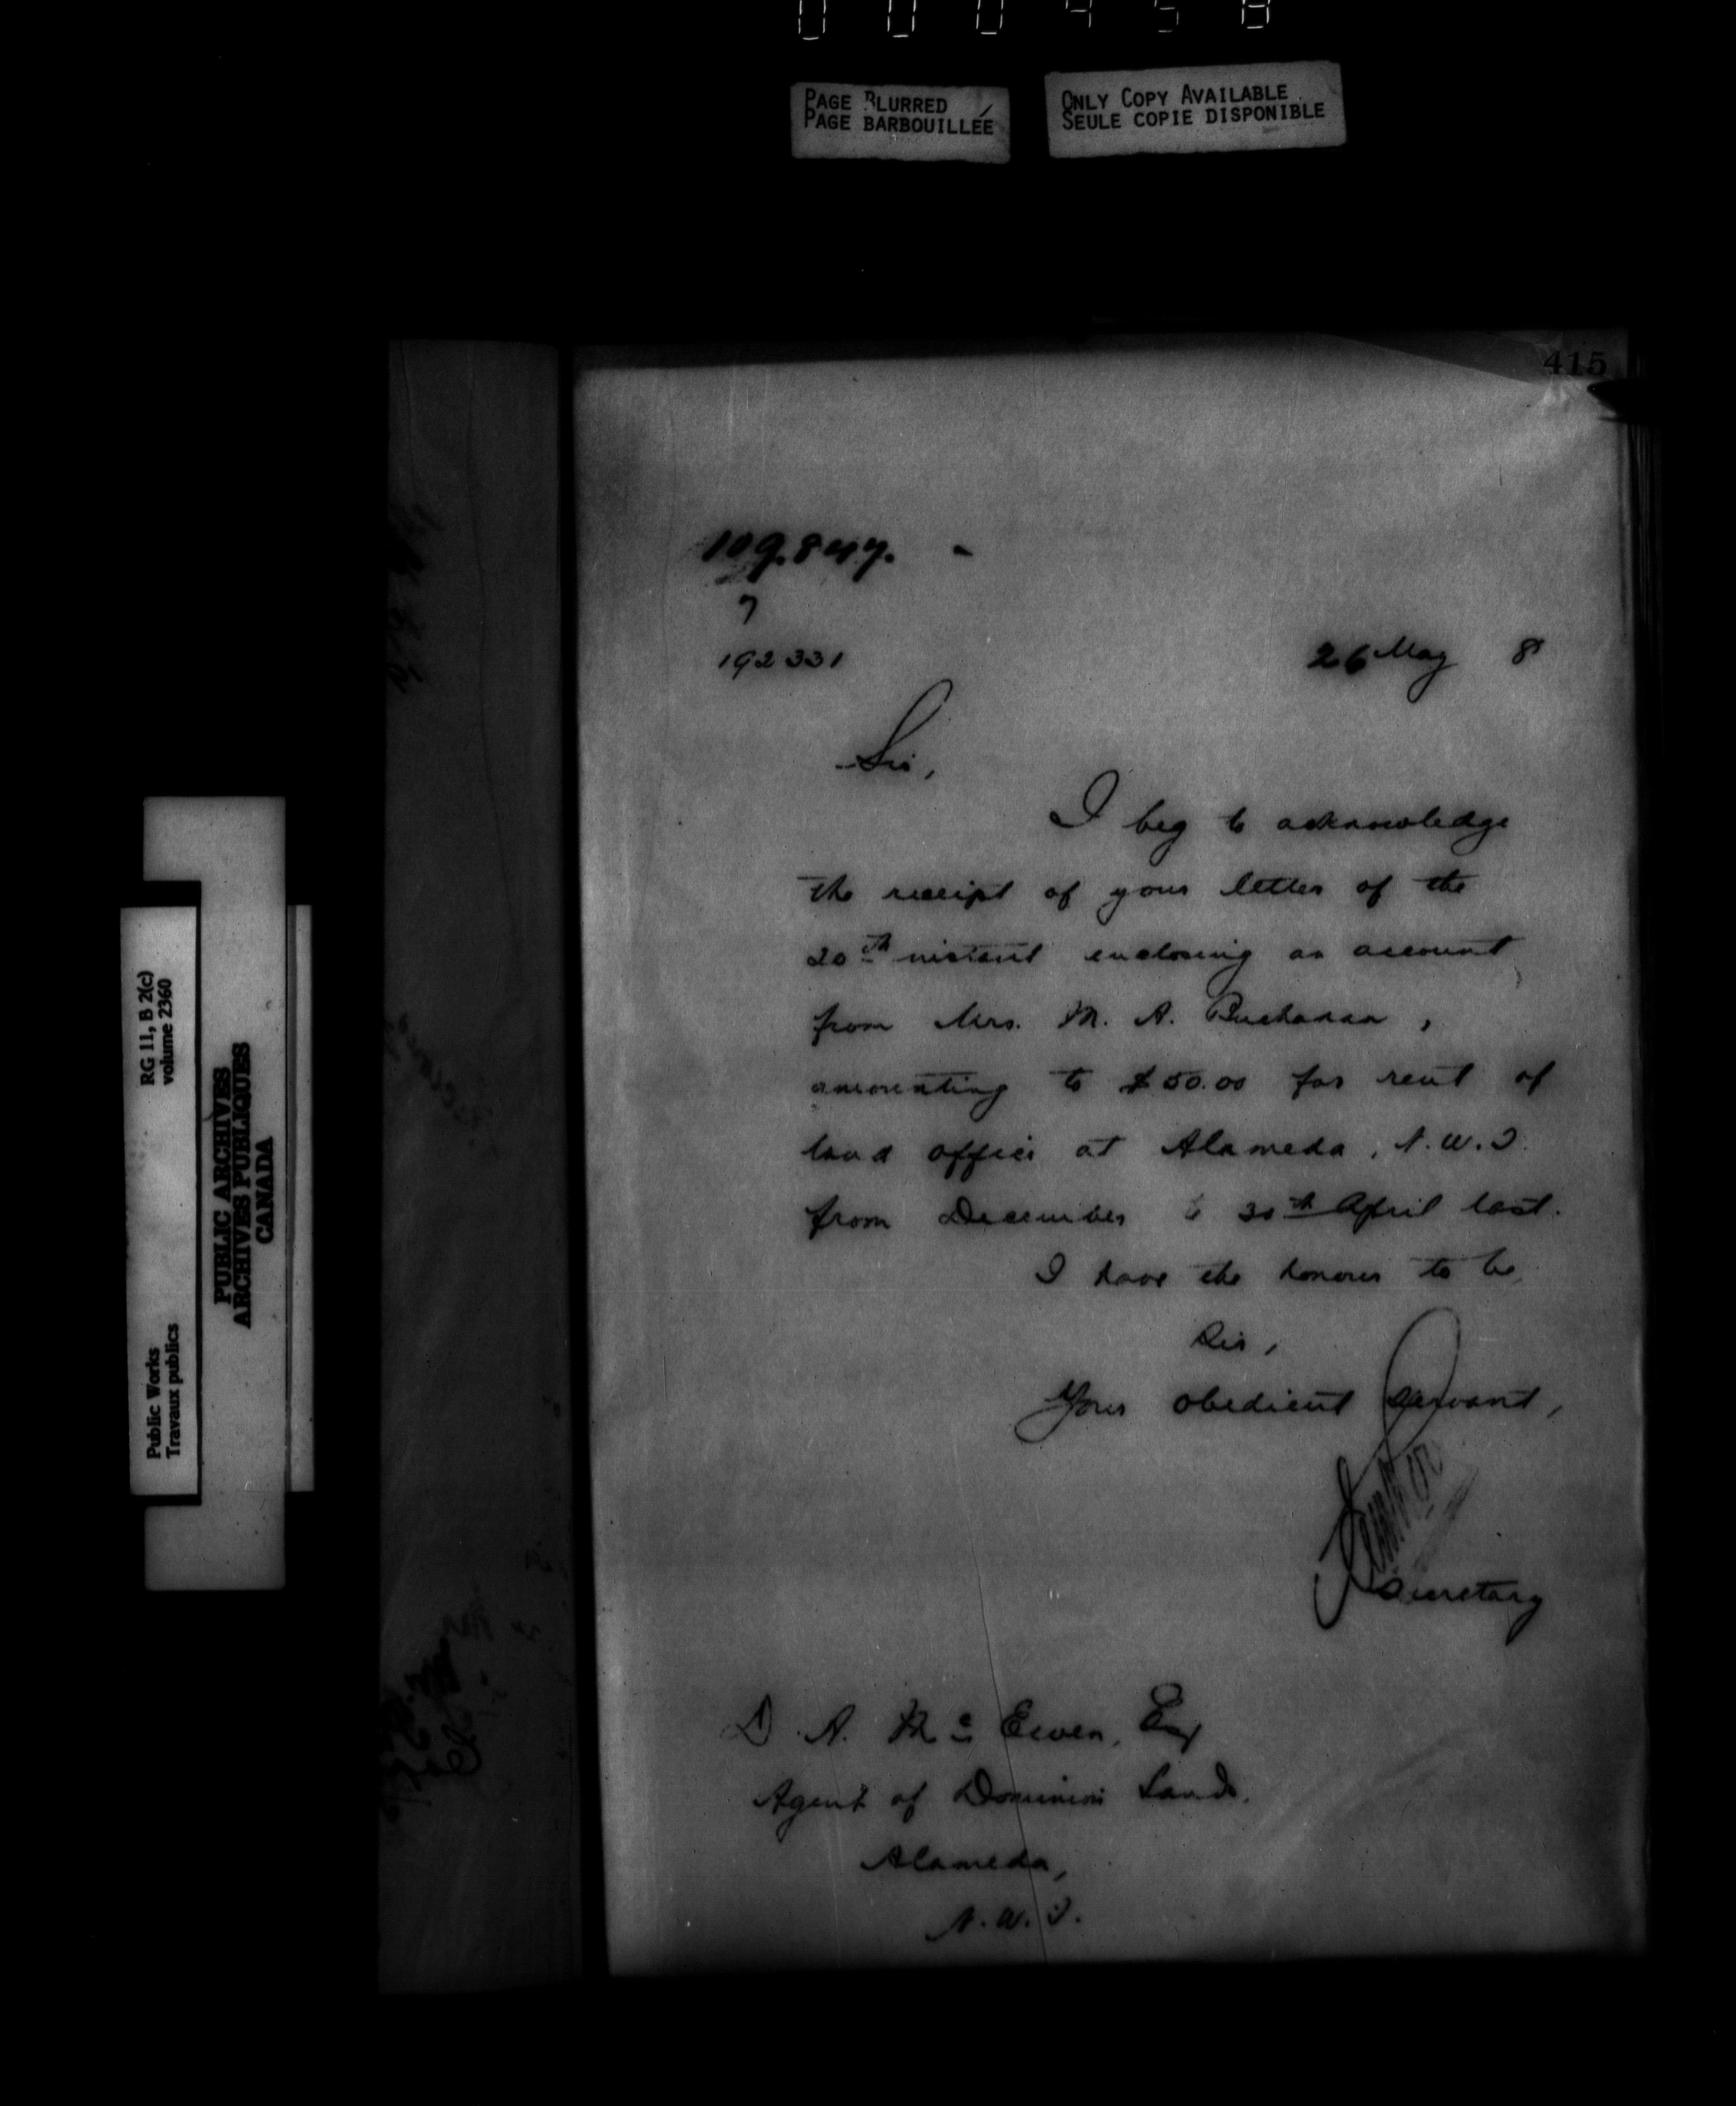 000458
PAGE BLURRED
PAGE BARBOUILLÉE
ONLY COPY AVAILABLE
SEULE COPIE DISPONIBLE
415
109.847.
7
192331
26 May 8
Sir,
I beg to acknowledge
the receipt of your letter of the
20th instant enclosing an account
from Mrs. M. A. Buchanan,
amounting to $50.00 for rent of
land office at Alameda, N.W.T.
from December to 30th April last.
I have the honour to be,
Sir,
Your obedient servant,
Secretary
D. A. Mc Ewen, Esq
Agent of Dominion Lands,
Alameda,
N.W.T.
RG 11, B 2(c)
volume 2360
Public Works
Travaux publics
PUBLIC ARCHIVES
ARCHIVES PUBLIQUES
CANADA